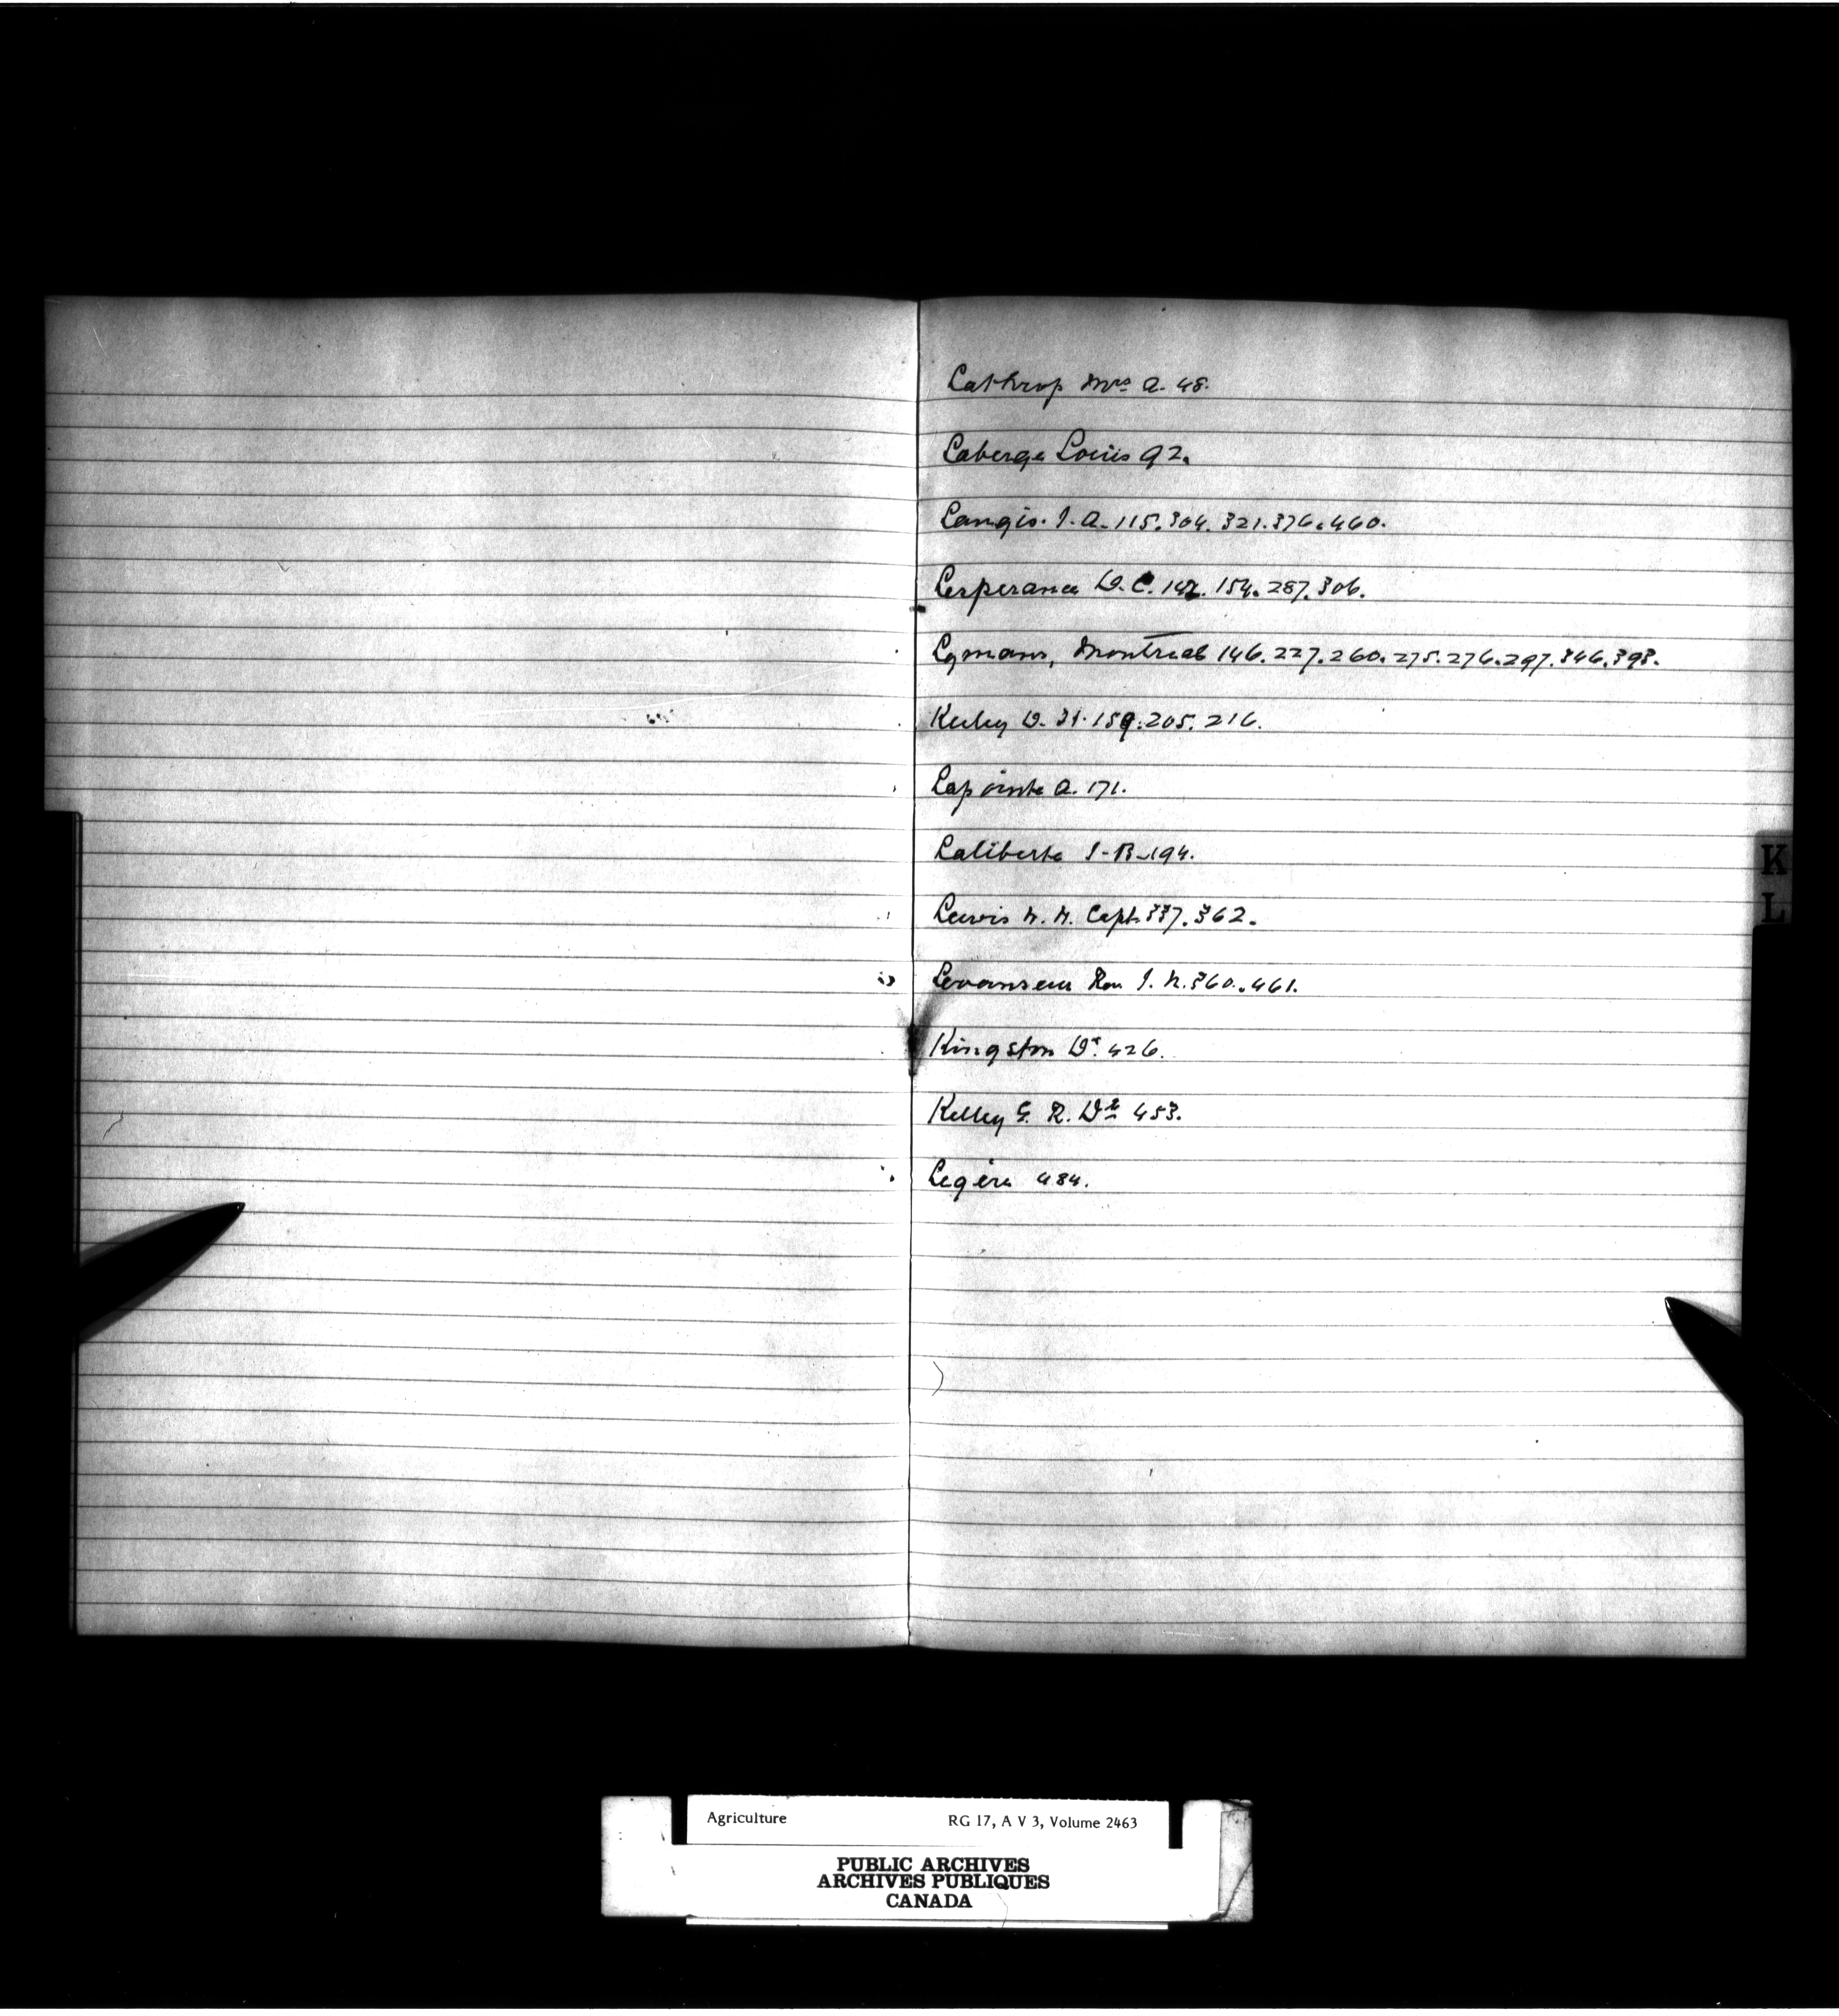 Lathrop Mrs A. 48.
Laberge Louis 92.
Langis. J. A. 115. 304. 321. 376. 460.
Lesperance D. C. 142. 154. 287. 306.
Lymans, Montreal 146. 227. 260. 275. 276. 297. 346. 393.
K
Keeley D. 31. 159. 205. 216.
Lapointe A. 171.
Laliberte J-B. 194.
L
Lewis Capt. 337. 362.
Levasseur J. N. 360. 461.
Kingston Dr. 426.
Kelley G. R. Dr 453.
Legère 484.
Agriculture RG 17, A V 3, Volume 2463
PUBLIC ARCHIVES
ARCHIVES PUBLIQUES
CANADA